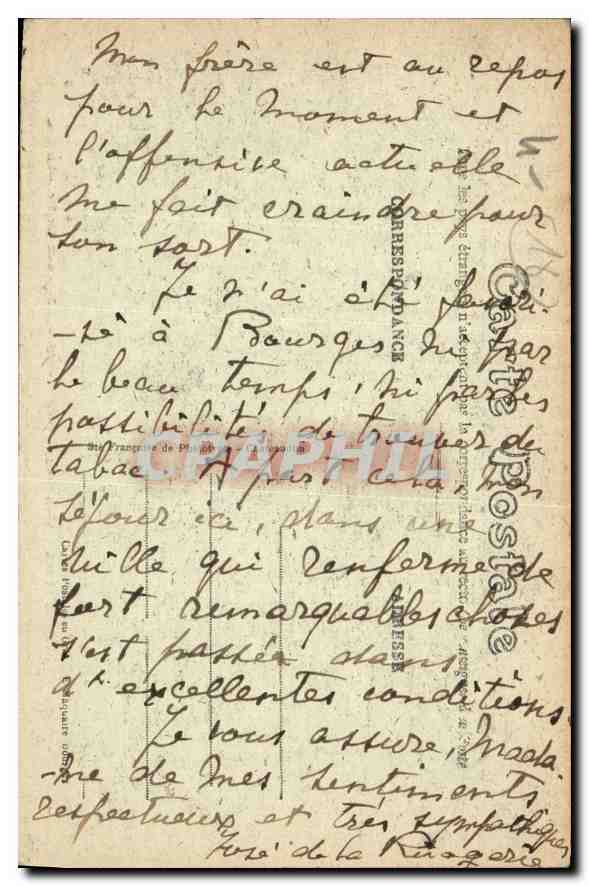 Mon frère est au repos
pour le moment et
l'offensive actuelle
me fait craindre pour
son sort.
Je n'ai été favori-
-sé à Bourges ni par
le beau temps, ni par les
possibilités de trouver du
tabac. A part cela, mon
séjour ici, dans une
ville qui renferme de
fort remarquables choses
s'est passée dans
d'excellentes conditions.
Je vous assure, Mada-
-me de mes sentiments
respectueux et très sympathiques
José de la
Carte Postale
CORRESPONDANCE
ADRESSE
Sté Française de Phototypie - Châteaudun
CPAPHIL